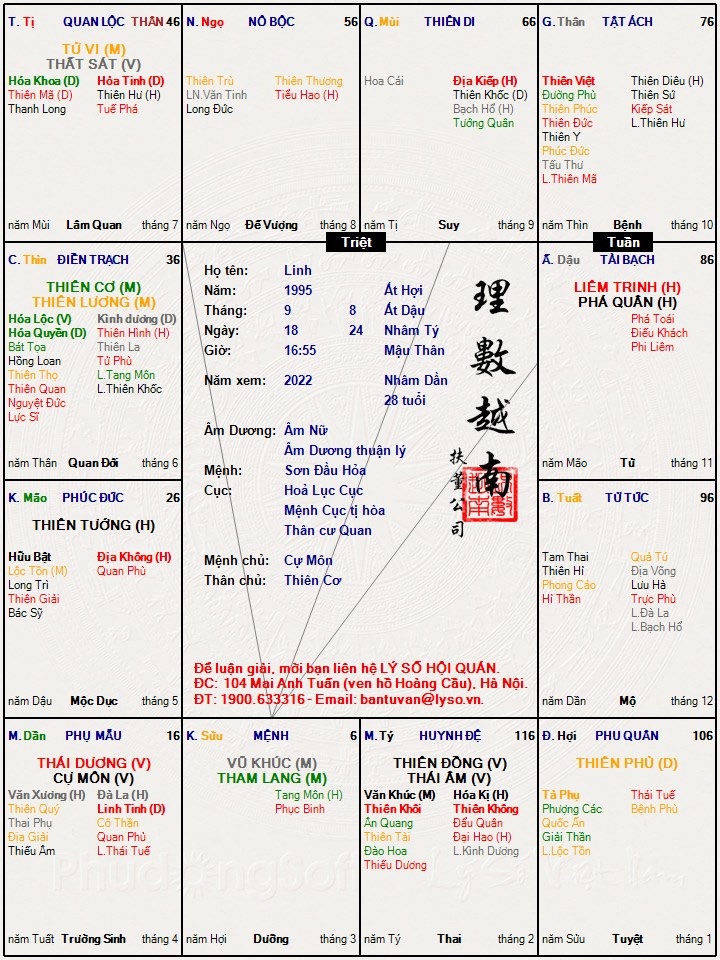 T. Tị QUAN LỘC THÂN 46
TỬ VI (M)
THẤT SÁT (V)
Hóa Khoa (D) Hỏa Tinh (D)
Thiên Mã (D) Thiên Hư (H)
Thanh Long Tuế Phá
năm Mùi Lâm Quan tháng 7
N. Ngọ NÔ BỘC 56
Thiên Trù Thiên Thương
LN.Văn Tinh Tiểu Hao (H)
Long Đức
năm Ngọ Đế Vượng tháng 8
Q. Mùi THIÊN DI 66
Hoa Cái Địa Kiếp (H)
Thiên Khốc (D)
Bạch Hổ (H)
Tướng Quân
năm Tị Suy tháng 9
G. Thân TẬT ÁCH 76
Thiên Việt Thiên Diêu (H)
Đường Phù Thiên Sứ
Thiên Phúc Kiếp Sát
Thiên Đức L.Thiên Hư
Thiên Y
Phúc Đức
Tấu Thư
L.Thiên Mã
năm Thìn Bệnh tháng 10
Triệt
Tuần
C. Thìn ĐIỀN TRẠCH 36
THIÊN CƠ (M)
THIÊN LƯƠNG (M)
Hóa Lộc (V) Kình dương (D)
Hóa Quyền (D) Thiên Hình (H)
Bát Tọa Thiên La
Hồng Loan Tử Phù
Thiên Thọ L.Tang Môn
Thiên Quan L.Thiên Khốc
Nguyệt Đức
Lực Sĩ
năm Thân Quan Đới tháng 6
Họ tên: Linh
Năm: 1995 Ất Hợi
Tháng: 9 8 Ất Dậu
Ngày: 18 24 Nhâm Tý
Giờ: 16:55 Mậu Thân
Năm xem: 2022 Nhâm Dần
28 tuổi
Âm Dương: Âm Nữ
Âm Dương thuận lý
Mệnh: Sơn Đầu Hỏa
Cục: Hoả Lục Cục
Mệnh Cục tị hòa
Thân cư Quan
Mệnh chủ: Cự Môn
Thân chủ: Thiên Cơ
理數越南
扶董公司
Để luận giải, mời bạn liên hệ LÝ SỐ HỘI QUÁN.
ĐC: 104 Mai Anh Tuấn (ven hồ Hoàng Cầu), Hà Nội.
ĐT: 1900.633316 - Email: bantuvan@lyso.vn.
Ấ. Dậu TÀI BẠCH 86
LIÊM TRINH (H)
PHÁ QUÂN (H)
Phá Toái
Điếu Khách
Phi Liêm
năm Mão Tử tháng 11
K. Mão PHÚC ĐỨC 26
THIÊN TƯỚNG (H)
Hữu Bật Địa Không (H)
Lộc Tồn (M) Quan Phù
Long Trì
Thiên Giải
Bác Sỹ
năm Dậu Mộc Dục tháng 5
B. Tuất TỬ TỨC 96
Tam Thai Quả Tú
Thiên Hỉ Địa Võng
Phong Cáo Lưu Hà
Hỉ Thần Trực Phù
L.Đà La
L.Bạch Hổ
năm Dần Mộ tháng 12
M. Dần PHỤ MẪU 16
THÁI DƯƠNG (V)
CỰ MÔN (V)
Văn Xương (H) Đà La (H)
Thiên Quý Linh Tinh (D)
Thai Phụ Cô Thần
Địa Giải Quan Phủ
Thiếu Âm L.Thái Tuế
năm Tuất Trường Sinh tháng 4
K. Sửu MỆNH 6
VŨ KHÚC (M)
THAM LANG (M)
Tang Môn (H)
Phục Binh
năm Hợi Dưỡng tháng 3
M. Tý HUYNH ĐỆ 116
THIÊN ĐỒNG (V)
THÁI ÂM (V)
Văn Khúc (M) Hóa Kị (H)
Thiên Khôi Thiên Không
Ân Quang Đẩu Quân
Thiên Tài Đại Hao (H)
Đào Hoa L.Kình Dương
Thiếu Dương
năm Tý Thai tháng 2
Đ. Hợi PHU QUÂN 106
THIÊN PHỦ (D)
Tả Phụ Thái Tuế
Phượng Các Bệnh Phù
Quốc Ấn
Giải Thần
L.Lộc Tồn
năm Sửu Tuyệt tháng 1